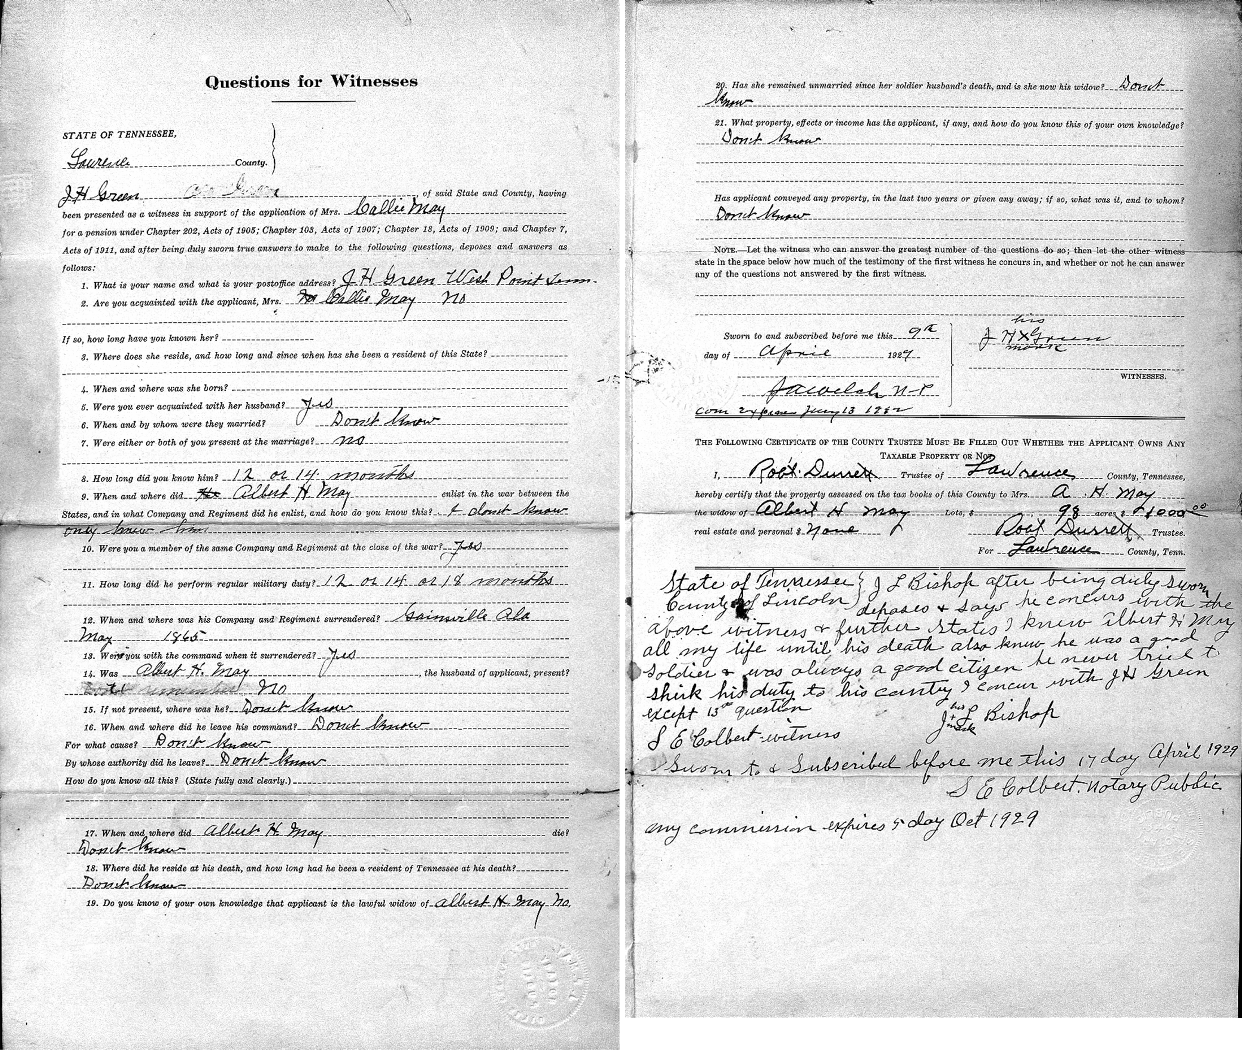 Questions for Witnesses
STATE OF TENNESSEE,
Lawrence County.
J H Green of said State and County, having
been presented as a witness in support of the application of Mrs. Callie May
for a pension under Chapter 202, Acts of 1905; Chapter 103, Acts of 1907; Chapter 18, Acts of 1909; and Chapter 7,
Acts of 1911, and after being duly sworn true answers to make to the following questions, deposes and answers as
follows:
1. What is your name and what is your postoffice address? J. H Green West Point Tenn.
2. Are you acquainted with the applicant, Mrs. Callie May No
If so, how long have you known her?
3. Where does she reside, and how long and since when has she been a resident of this State?
4. When and where was she born?
5. Were you ever acquainted with her husband? yes
6. When and by whom were they married? Don't know
7. Were either or both of you present at the marriage? no
8. How long did you know him? 12 or 14 months
9. When and where did Albert H May enlist in the war between the
States, and in what Company and Regiment did he enlist, and how do you know this? I dont know
only knew him
10. Were you a member of the same Company and Regiment at the close of the war? yes
11. How long did he perform regular military duty? 12 or 14 or 18 months
12. When and where was his Company and Regiment surrendered? Gainsville Ala
May 1865
13. Were you with the command when it surrendered? yes
14. Was Albert H. May, the husband of applicant, present?
No
15. If not present, where was he? Don't know
16. When and where did he leave his command? Don't know
For what cause? Don't know
By whose authority did he leave? Don't know
How do you know all this? (State fully and clearly.)
17. When and where did Albert H May die?
Don't know
18. Where did he reside at his death, and how long had he been a resident of Tennessee at his death?
Don't know
19. Do you know of your own knowledge that applicant is the lawful widow of Albert H. May No.
20. Has she remained unmarried since her soldier husband's death, and is she now his widow? Don't
know
21. What property, effects or income has the applicant, if any, and how do you know this of your own knowledge?
Don't know
Has applicant conveyed any property, in the last two years or given any away; if so, what was it, and to whom?
Don't know
NOTE.—Let the witness who can answer the greatest number of the questions do so; then let the other witness
state in the space below how much of the testimony of the first witness he concurs in, and whether or not he can answer
any of the questions not answered by the first witness.
Sworn to and subscribed before me this 9th
day of April 1929
J A Welch N-P
Com Expires Jany 13 1932
his
J H X Green
mark
WITNESSES.
THE FOLLOWING CERTIFICATE OF THE COUNTY TRUSTEE MUST BE FILLED OUT WHETHER THE APPLICANT OWNS ANY
TAXABLE PROPERTY OR NOT.
I, Robt Durrett Trustee of Lawrence County, Tennessee,
hereby certify that the property assessed on the tax books of this County to Mrs. A. H. May
the widow of Albert H May Lots, $ 98 acres $ 1000.00
real estate and personal $ None Robt Durrett Trustee.
For Lawrence County, Tenn.
State of Tennessee } J L Bishop after being duly sworn
County of Lincoln } deposes & says he concurs with the
above witness & further states I knew Albert H May
all my life until his death also know he was a good
soldier & was always a good citizen he never tried to
shirk his duty to his country I concur with J H Green
except 13th question
his
J L Bishop
mark
S E Colbert witness
Sworn to & Subscribed before me this 17 day April 1929
S E Colbert. Notary Public
my commission expires 5 day Oct 1929